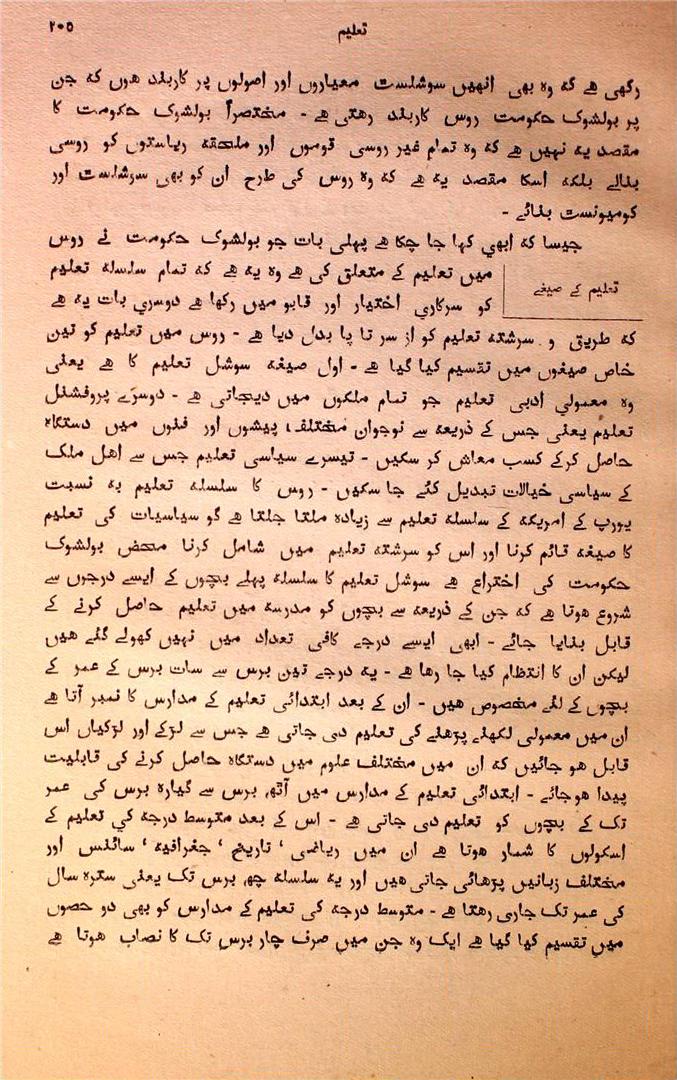 تعلیم
۲۰۵
رکھی ھے کہ وہ بھی انھیں سوشلست معیاروں اور اصولوں پر کاربند ھوں کہ جن
پر بولشوک حکومت روس کاربند رھتی ھے - مختصراً بولشوک حکومت کا
مقصد یہ نہیں ھے کہ وہ تمام غیر روسی قوموں اور ملحقہ ریاستوں کو روسی
بنالے بلکہ اسکا مقصد یہ ھے کہ وہ روس کی طرح ان کو بھی سوشلست اور
کومیونست بنائے -
جیسا کہ ابھی کہا جا چکا ھے پہلی بات جو بولشوک حکومت نے روس
میں تعلیم کے متعلق کی ھے وہ یہ ھے کہ تمام سلسلہ تعلیم
تعلیم کے صیغے
کو سرکاری اختیار اور قابو میں رکھا ھے دوسری بات یہ ھے
کہ طریق و سرشتہ تعلیم کو از سر تا پا بدل دیا ھے - روس میں تعلیم کو تین
خاص صیغوں میں تقسیم کیا گیا ھے - اول صیغہ سوشل تعلیم کا ھے یعنی
وہ معمولی ادبی تعلیم جو تمام ملکوں میں دیجاتی ھے - دوسرے پروفشنل
تعلیم یعنی جس کے ذریعہ سے نوجوان مختلف پیشوں اور فنوں میں دستگاہ
حاصل کرکے کسب معاش کر سکیں - تیسرے سیاسی تعلیم جس سے اھل ملک
کے سیاسی خیالات تبدیل کئے جا سکیں - روس کا سلسلہ تعلیم بہ نسبت
یورپ کے امریکہ کے سلسلہ تعلیم سے زیادہ ملتا جلتا ھے گو سیاسیات کی تعلیم
کا صیغہ قائم کرنا اور اس کو سرشتہ تعلیم میں شامل کرنا محض بولشوک
حکومت کی اختراع ھے سوشل تعلیم کا سلسلہ پہلے بچوں کے ایسے درجوں سے
شروع ھوتا ھے کہ جن کے ذریعہ سے بچوں کو مدرسہ میں تعلیم حاصل کرنے کے
قابل بنایا جائے - ابھی ایسے درجے کافی تعداد میں نہیں کھولے گئے ھیں
لیکن ان کا انتظام کیا جا رھا ھے - یہ درجے تین برس سے سات برس کے عمر کے
بچوں کے لئے مخصوص ھیں - ان کے بعد ابتدائی تعلیم کے مدارس کا نمبر آتا ھے
ان میں معمولی لکھنے پڑھنے کی تعلیم دی جاتی ھے جس سے لڑکے اور لڑکیاں اس
قابل ھو جائیں کہ ان میں مختلف علوم میں دستگاہ حاصل کرنے کی قابلیت
پیدا ھوجائے - ابتدائی تعلیم کے مدارس میں آٹھ برس سے گیارہ برس کی عمر
تک کے بچوں کو تعلیم دی جاتی ھے - اس کے بعد متوسط درجہ کی تعلیم کے
اسکولوں کا شمار ھوتا ھے ان میں ریاضی ' تاریخ ' جغرافیہ ' سائنس اور
مختلف زبانیں پڑھائی جاتی ھیں اور یہ سلسلہ چھ برس تک یعنی سترہ سال
کی عمر تک جاری رھتا ھے - متوسط درجہ کی تعلیم کے مدارس کو بھی دو حصوں
میں تقسیم کیا گیا ھے ایک وہ جن میں صرف چار برس تک کا نصاب ھوتا ھے